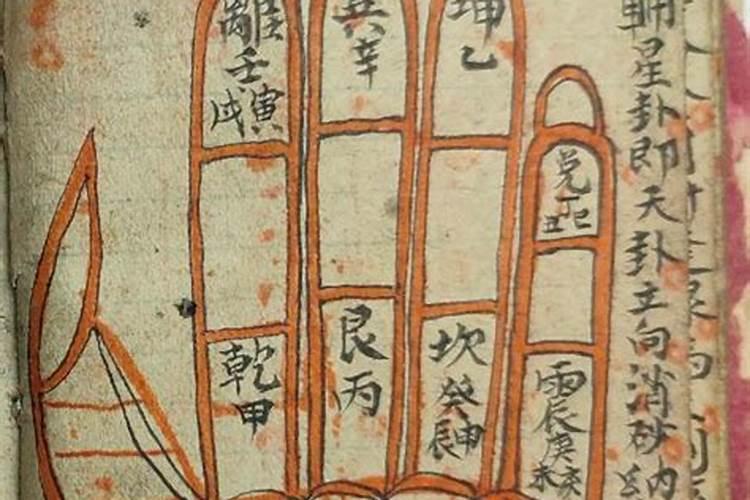 輔星卦即天卦立向消砂納
兌丁巳丑
震庚亥未
坤乙
坎癸申辰
巽辛
艮丙
離壬寅戌
乾甲